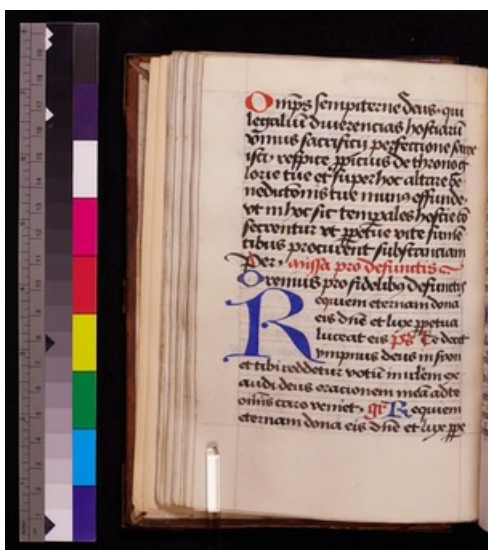 Omps sempiterne deus qui
legaliu diuerencias hostiaru
vnius sacrificij perfeccione
respice ppicius de throno g
lorie tue et super hoc altare be
nedictionis tue munus effunde
vt in hoc sic temporales hostie
vt ppetue vite
tibus procurent substanciam
Per. missa pro defunctis
Oremus pro fidelibus defunctis
Requiem eternam dona
eis dne et lux ppetua
luceat eis ps Te decet
ympnus deus in syon
et tibi reddetur votu in irlem ex
audi deus oracionem mea ad te
omnis caro veniet. gr Requiem
eternam dona eis dne et lux ppe